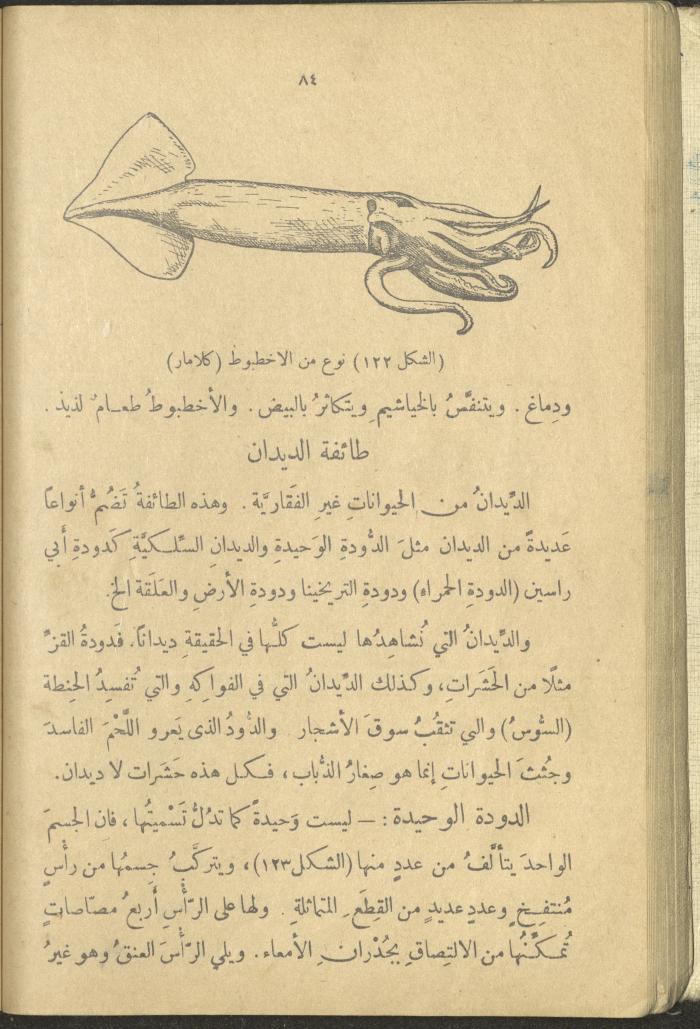 ٨٤
(الشكل ١٢٢) نوع من الاخطبوط (كلامار)
ودِماغ . ويتنفَّسُ بالخياشيمِ ويتكاثرُ بالبيض . والأخطبوطُ طعـامٌ لذيذ .
طائفة الديدان
الدِّيدانُ من الحيواناتِ غيرِ الفَقاريَّة . وهذه الطائفةُ تَضُمُّ أنواعاً
عَديدةً من الديدان مثلَ الدُّودةِ الوَحيدةِ والديدانِ السِّلكيَّةِ كَدودةِ أَبي
راسين (الدودةِ الحمراء) ودودةِ التريخينا ودودةِ الأرضِ والعَلَقة الخ.
والدِّيدانُ التي نُشاهِدُها ليست كلُّها في الحقيقةِ ديداناً. فَدودةُ القزِّ
مثلًا من الحَشَراتِ، وكذلك الدِّيدانُ التي في الفواكِهِ والتي تُفسِدُ الحِنطة
(السُّوسُ) والتي تثقُبُ سوقَ الأشجار والدُّودُ الذى يَعرو اللَّحْمَ الفاسدَ
وجُثثَ الحيواناتِ إنما هو صِغارُ الذُّباب ، فكل هذه حَشَرات لا ديدان.
الدودة الوحيدة : — ليست وَحيدةً كما تدُلُّ تَسْميتُها ، فان الجسمَ
الواحدَ يتأَلَّفُ من عددٍ منها (الشكل١٢٣) ، ويتركَّبُ جِسمُها من رأْسٍ
مُنتفِخٍ وعددٍ عديدٍ من القِطَعِ المتماثلةِ . ولها على الرّأْسِ أَربعُ مصّاصاتٍ
تُمكِّنُها من الالتِصاقِ بجُدْرانِ الأمعاء . ويلي الرّأْسَ العنقُ وهو غيرُ